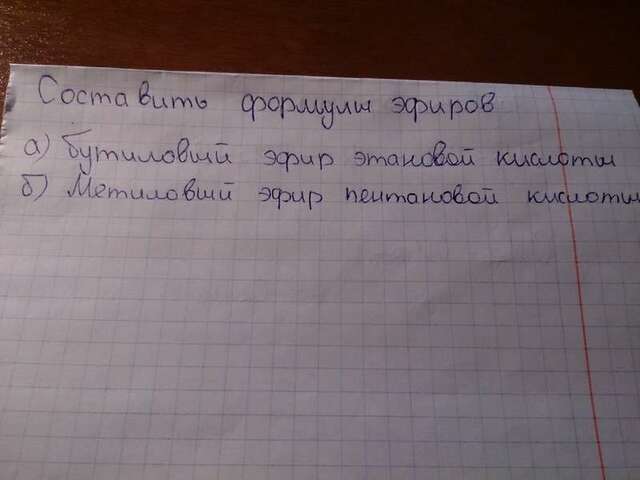 Составить формулы эфиров
а) Бутиловый эфир этановой кислоты
б) Метиловый эфир пентановой кислоты